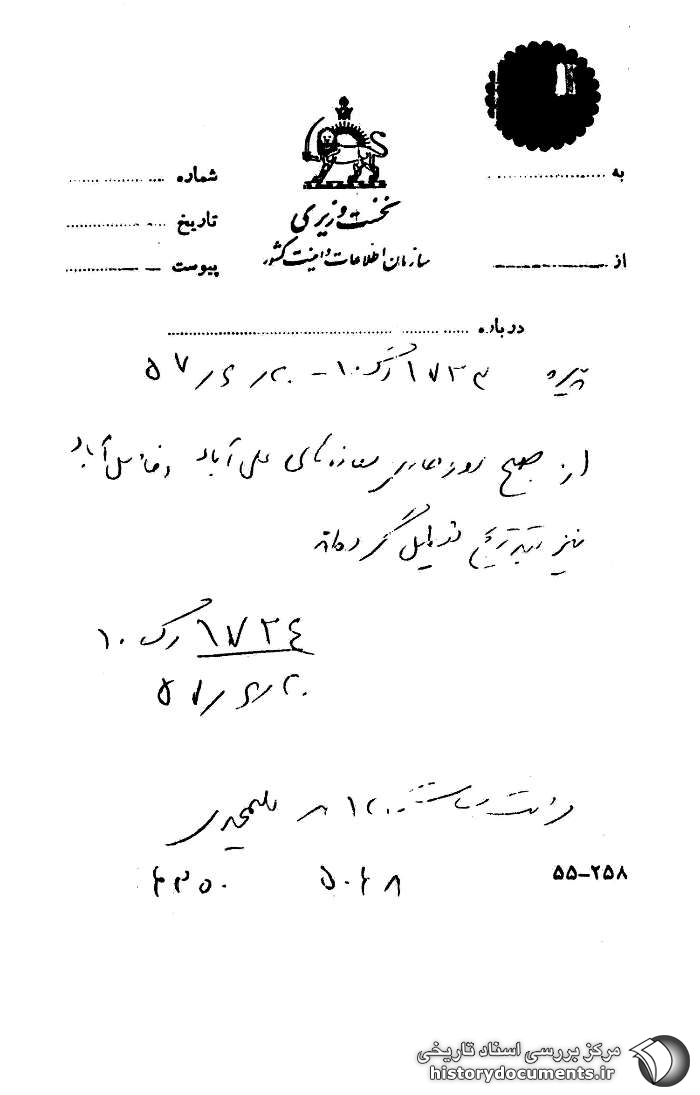 به
شماره
نخست وزیری
تاریخ
سازمان اطلاعات و امنیت کشور
از
پیوست
درباره
پیرو ۱۷۳۳ رک ۱۰ - ۲۰/۶/۵۷
از صبح روز جاری مغازه های علی آباد و فاضل آباد
نیز بتدریج تعطیل گردیده
۱۷۳۴ رک ۱۰
۲۰/۶/۵۷
۵۰۴۸
۵۵-۲۵۸
مرکز بررسی اسناد تاریخی
historydocuments.ir